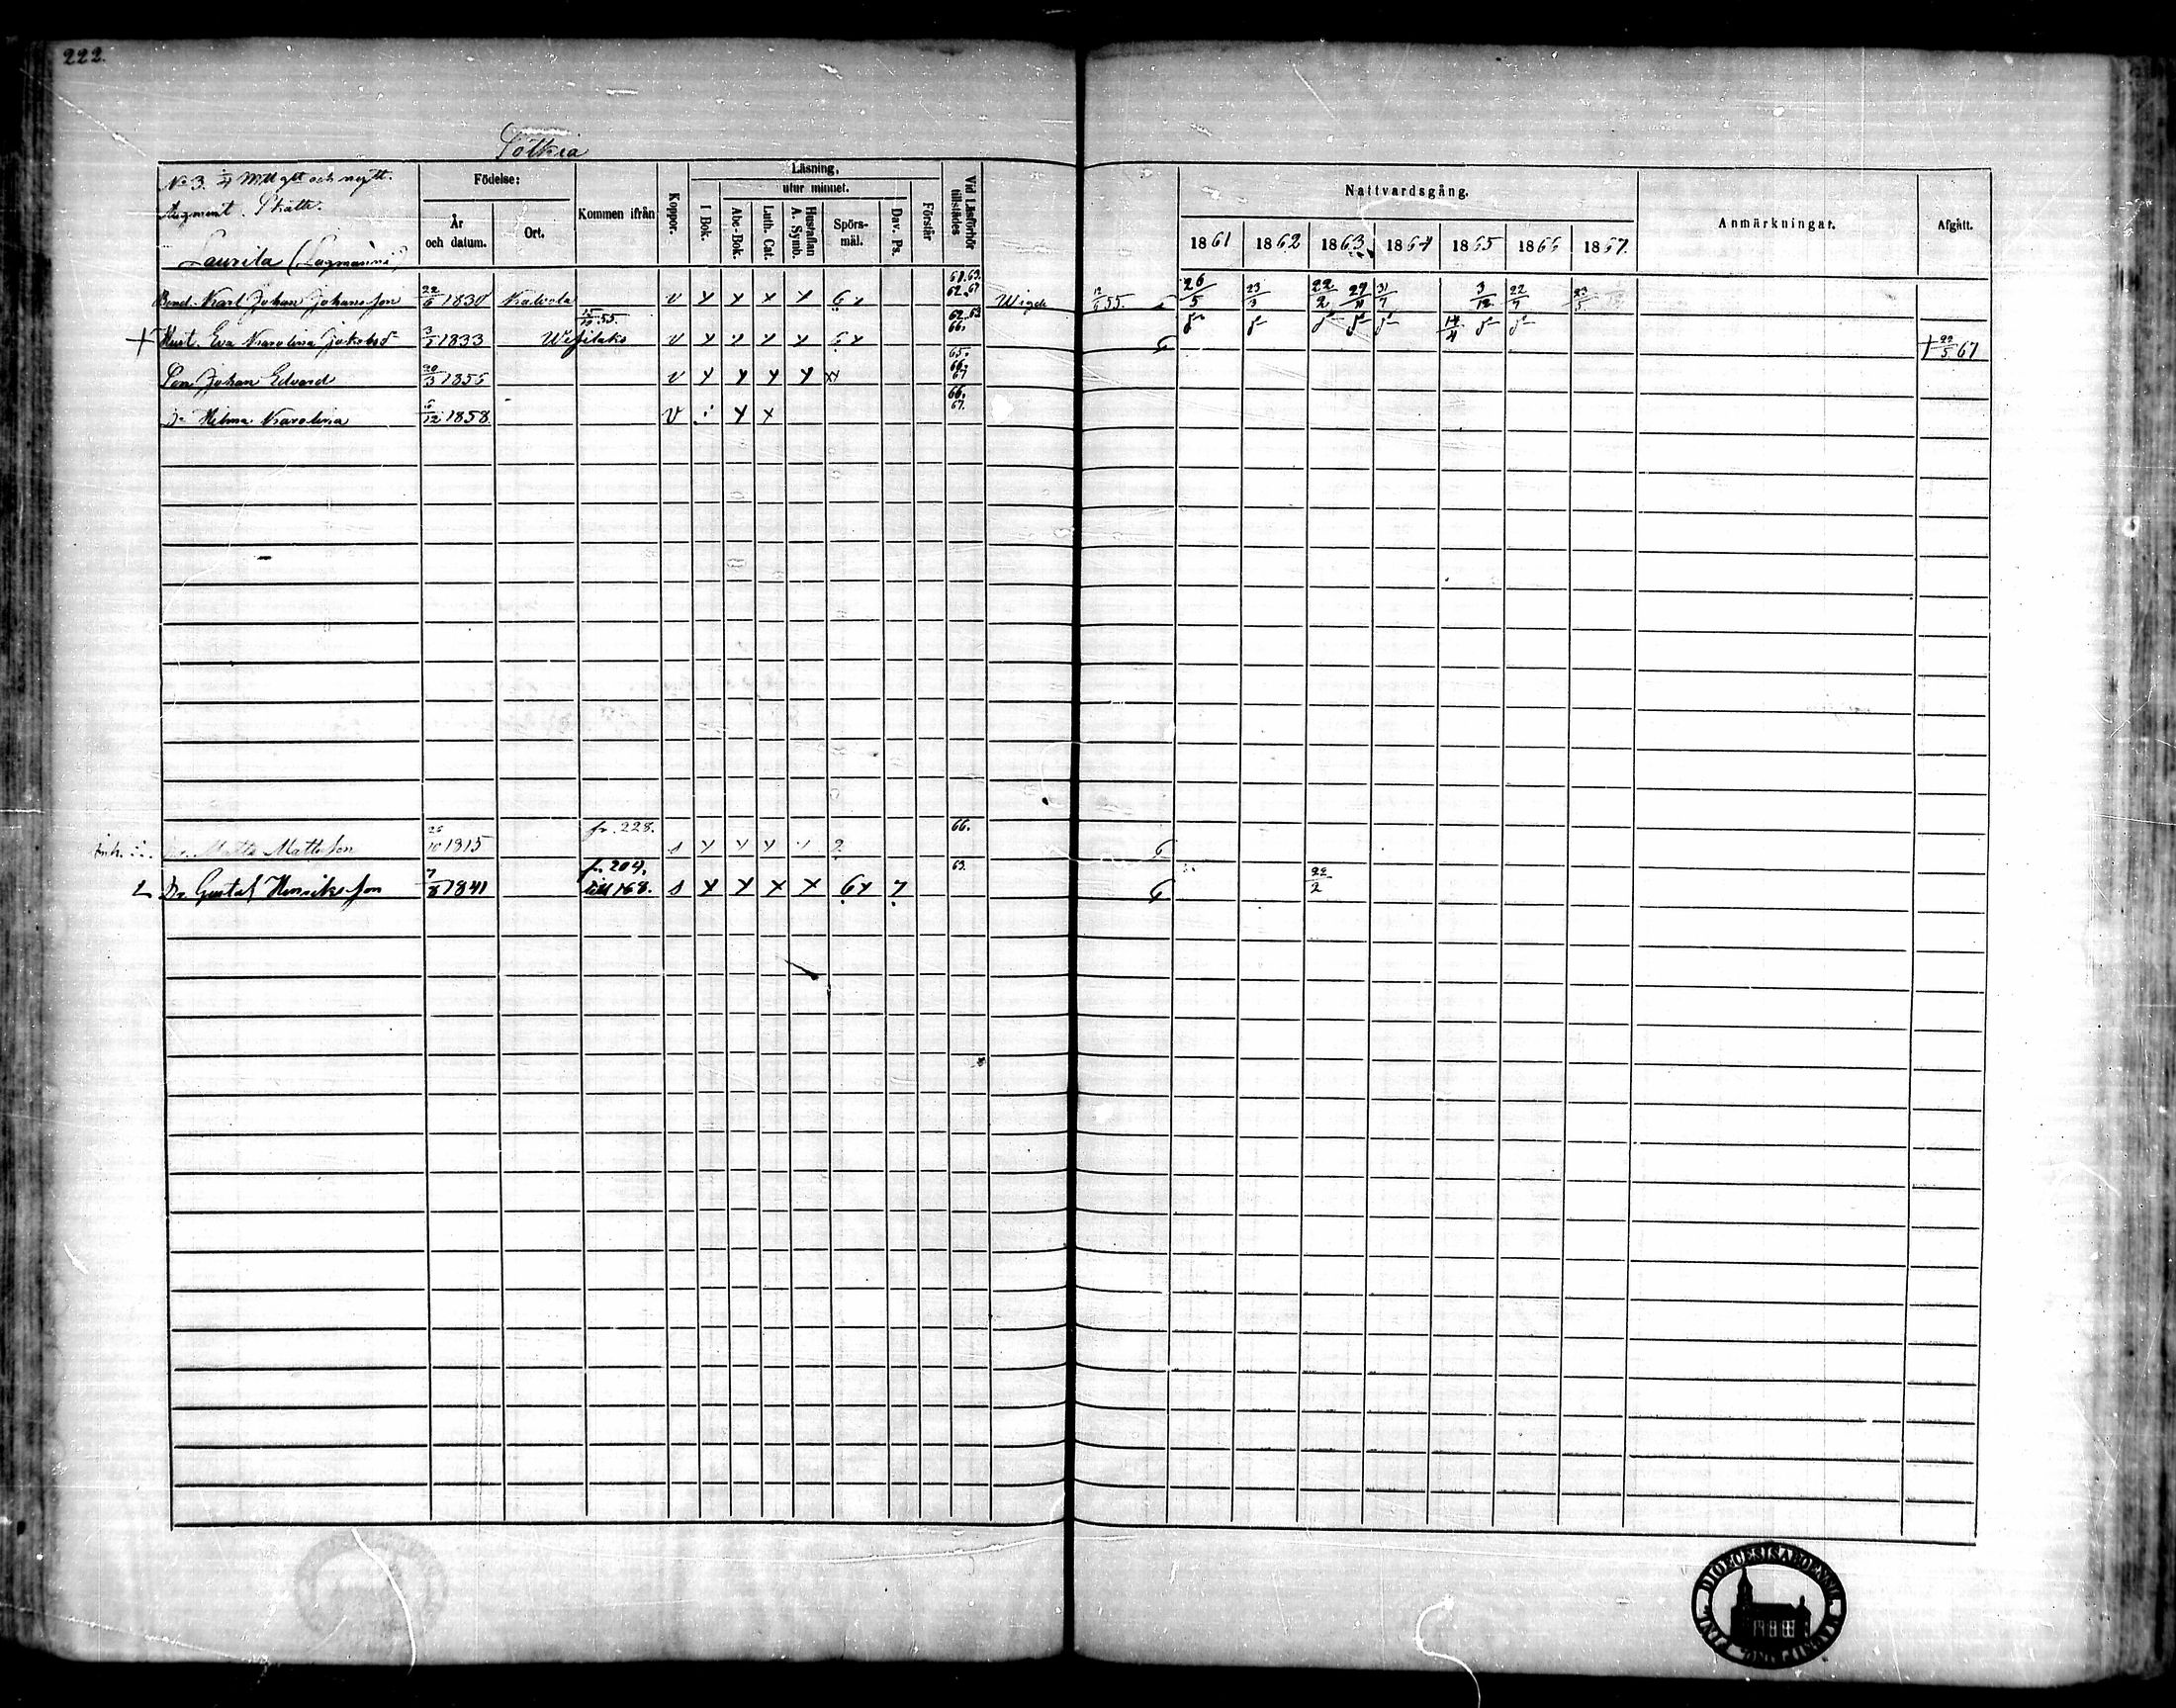 222.
Sotkia
No 3. 1/4 Mtl gtt och nytt.
Augment. Skatte.
Laurila (Lagmanni)
Födelse:
År och datum.
Ort.
Kommen ifrån
Koppor.
Läsning,
utur minnet.
I Bok.
Abc-Bok.
Luth. Cat.
Hustaflan A. Symb.
Spörs-mål.
Dav. Ps.
Förstår
Vid Läsförhör tillstädes
Nattvardsgång.
1861 1862 1863 1864 1865 1866 1867.
Anmärkningar.
Afgått.
Bond. Karl Johan Johansson 22/6 1830 Kalvola v x x x x 6 x 61. 63. 62. 67 Wigde 12/6 55. 26/5 23/3 22/2 29/11 31/7 3/12 22/7 23/5
+ Hust. Eva Karolina Jakobsdr 3/5 1833 15/10 55. Wesilaks v x x x x 6 x 62. 63 66. G † 29/5 67
Son Johan Edvard 20/3 1855 v x x x x xx 65. 66. 67
Dr Hilma Karolina 6/12 1858 v x x 66. 67.
Inh. Matts Mattsson 26/10 1815 fr. 228. s x x x 2 66. G
Dr. Gustaf Henriksson 7/8 1841 fr. 204. till 168. s x x x x 6x 7 63. G 22/2
DIOECESIS ABOENSIS